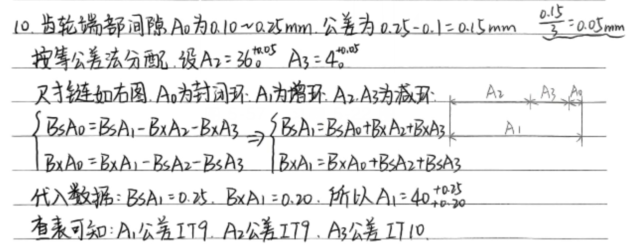 10. 齿轮端部间隙A₀为0.10~0.25mm. 公差为0.25-0.1=0.15mm 0.15/3=0.05mm
按等公差法分配. 设A₂=36₀^{+0.05} A₃=4₀^{+0.05}
尺寸链如右图. A₀为封闭环. A₁为增环. A₂.A₃为减环. A₂ A₃ A₀
{BsA₀=BsA₁-BxA₂-BxA₃ ⇒ {BsA₁=BsA₀+BxA₂+BxA₃ A₁
BxA₀=BxA₁-BsA₂-BsA₃ BxA₁=BxA₀+BsA₂+BsA₃
代入数据: BsA₁=0.25. BxA₁=0.20. 所以A₁=40_{+0.20}^{+0.25}
查表可知: A₁公差IT9. A₂公差IT9. A₃公差IT10.